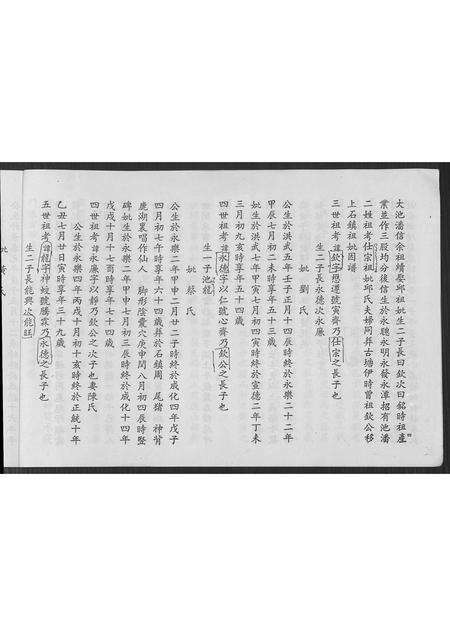 大池潘信余祖續娶邱祖妣生二子長曰欽次曰銘時祖產
業並作三股均分後信生於永聰永明永發永潭招有池潘
二姓祖考仕宗祖妣邱氏夫婦同葬古塘伊時曾祖欽公移
上石鎮祖妣因譜
三世祖考諱欽字愿遜號寅齋乃仕宗之長子也
生二子長永德次永廉
妣劉氏
公生於洪武五年壬子正月十四辰時終於永樂二十二年
甲辰七月初二未時享年五十三歲
妣生於洪武七年甲寅七月初四寅時終於宣德二年丁未
三月初九亥時享年五十四歲
四世祖考諱永德字以仁號心齋乃欽公之長子也
生一子池龍
妣蔡氏
公生於永樂二年甲申二月廿二子時終於成化四年戊子
四月初七午時享年六十四歲葬於石鎮周 尾豬 神背
鹿湖裏唱作仙人 腳形陰囊穴庚申間八月初四辰時竪
碑妣生於永樂二年甲申七月初三辰時終於成化十四年
戊戌十月十七酉時享年七十四歲
四世祖考諱永廉字以靜乃欽公之次子也妻陳氏
公生於永樂四年丙戌十月初十亥時終於正統十年
乙丑七月廿日寅時享年三十九歲
生二子長龍興次龍旺
五世祖考諱龍字神綻號騰霖乃永德之長子也
妣黃氏